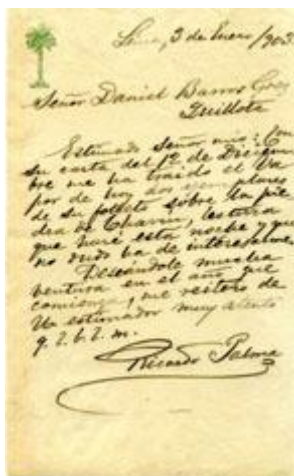 Lima, 3 de Enero/903.
Señor Daniel Barros Grez
Quillota
Estimado señor mio: Con
su carta del 1º de Diciem
bre me ha traido el va
por de hoy dos ejemplares
de su folleto sobre la pie
dra de Chavin, lectura
que haré esta noche y que
no dudo ha de interesarme.
Deseándole mucha
ventura en el año que
comienza, me reitero de
Ud. estimador muy atento
q. l. b. l. m.
Ricardo Palma